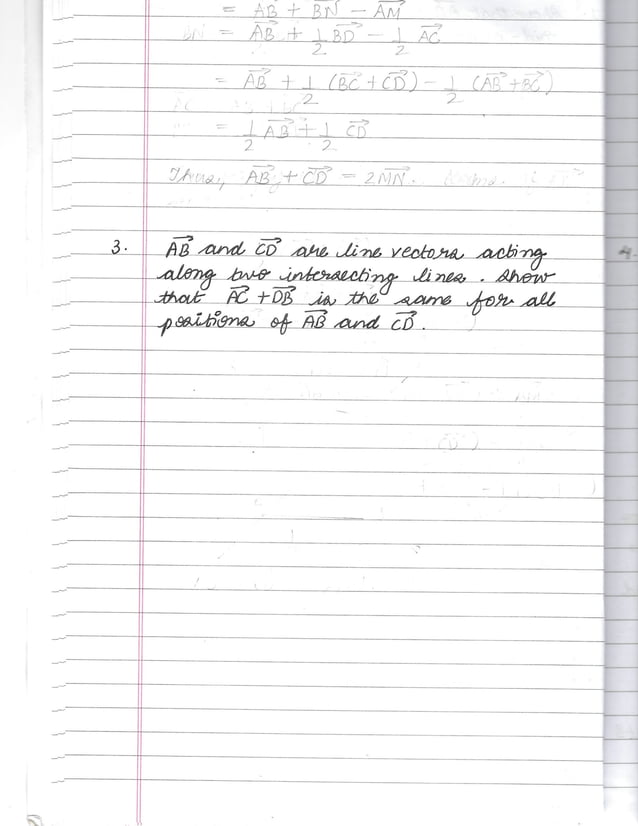 = AB + BN − AM
= AB + 1/2 BD − 1/2 AC
= AB + 1/2 (BC + CD) − 1/2 (AB + BC)
= 1/2 AB + 1/2 CD
Thus, AB + CD = 2MN.
3. AB and CD are line vectors acting
along two intersecting lines. Show
that AC + DB is the same for all
positions of AB and CD.